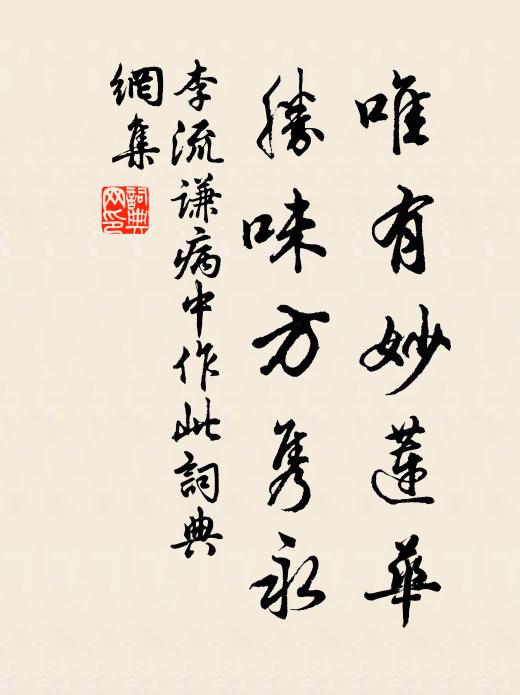 唯有妙蓮華
勝味方隽永
李流谦病中作此詞典
網集
詞典網印